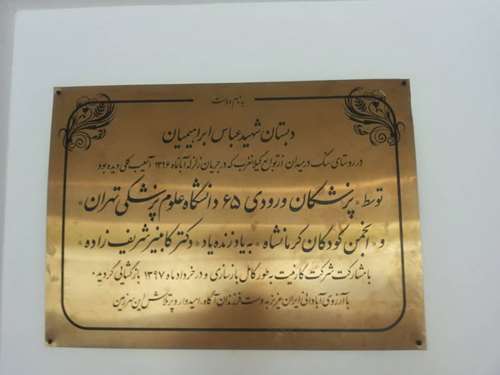 به نام دوست
دبستان شهید عباس ابراهیمیان
در روستای سنگ در میدان از توابع گیلانغرب که در جریان زلزله آبانماه ۱۳۹۶ آسیب کلی دیده بود
توسط «پزشکان ورودی ۶۵ دانشگاه علوم پزشکی تهران»
و «انجمن کودکان کرمانشاه» به یاد زنده یاد «دکتر کامبیز شریف زاده»
با مشارکت شرکت کارفیت به طور کامل بازسازی و در خرداد ماه ۱۳۹۷ بازگشایی گردید.
با آرزوی آبادانی ایران عزیز به دست فرزندان آگاه، امیدوار و پرتلاش این سرزمین